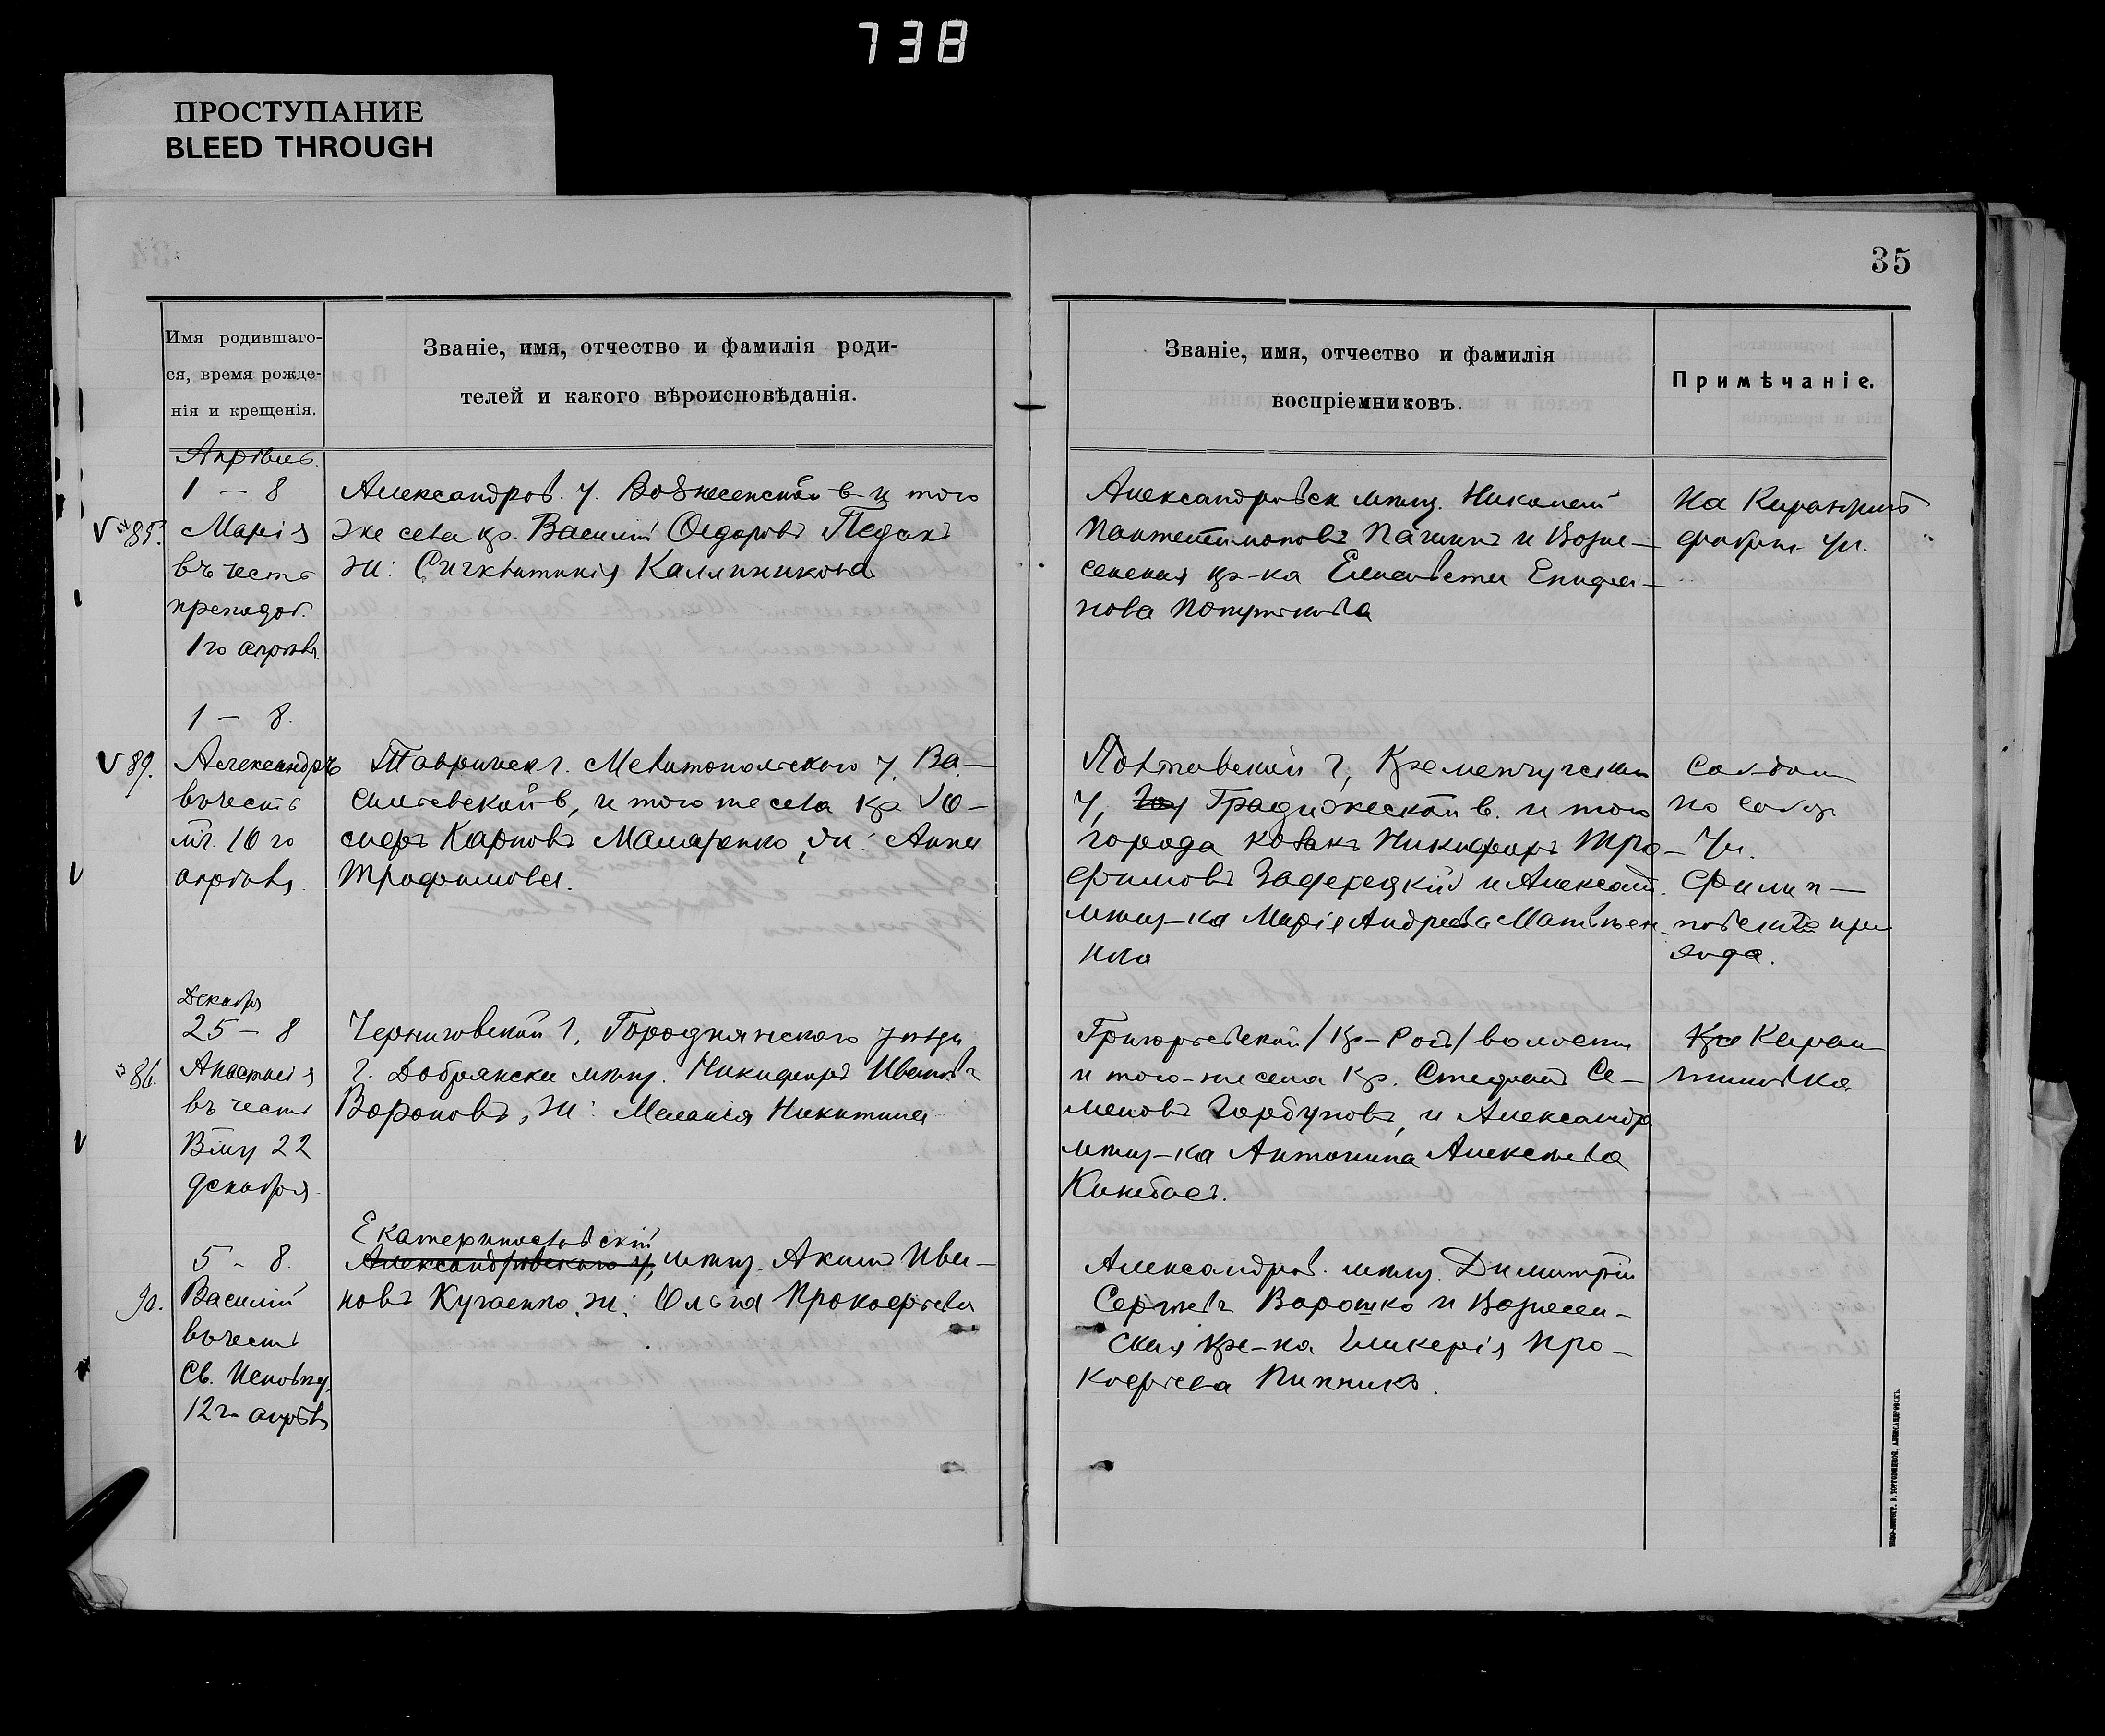 738
ПРОСТУПАНИЕ
BLEED THROUGH
35
Имя родившаго-
ся, время рожде-
нія и крещенія.
Званіе, имя, отчество и фамилія роди-
телей и какого вѣроисповѣданія.
Званіе, имя, отчество и фамилія
воспріемниковъ.
Примѣчаніе.
Апрѣль.
1 – 8
85.
Марія
въ честь
преподоб.
1го апрѣля
Александров. у. Вознесенской в. и того
же села кр. Василій Ѳедоровъ Педакъ
ж: Каллиникова
Александровск мѣщ. Николай
Пантелимоновъ Пагинъ и Возне-
сенская кр-ка Елисавета Епифа-
нова
На
фабрич. ул.
1 – 8.
89.
Александръ
въ честь
мч. 10го
апрѣля.
Таврическ г. Мелитопольского у. Ва-
сильевской в, и того же села кр. Іо-
сифъ Карповъ Мамаренко, ж: Анна
Трофимова.
Полтавской г, Кременчугскаго
у, Градижской в. и того
города козакъ Никифоръ Тро-
фимовъ Задерецкій и Александ.
мѣщ-ка Марія Андреева Матвѣен-
ко
по собор
ул.
Филип-
повского при
хода.
Декабря
25 – 8
86.
Анастасія
въ честь
Вмц 22
декабря.
Черниговской г, Городнянского уѣзда
г. Добрянски мѣщ. Никифоръ Ивановъ
Вороновъ, ж: Меланія Никитина
Григорьевской / Кр-Рогъ / волости
и того-же села кр. Стефанъ Се-
меновъ Горбуновъ, и Александр
мѣщ-ка Антонина Алексѣева
Каран
тиновка
5 – 8.
90.
Василій
въ честь
Св. Исповѣд.
12го апрѣля
Екатеринославскій
Александровского у, мѣщ. Акимъ Ива-
новъ Кучаенко, ж: Ольга Прокофьева
Александров. мѣщ. Димитрій
Сергѣевъ Ворошко и Вознесен-
ская кре-ка Гликерія Про-
кофьева Пипникъ.